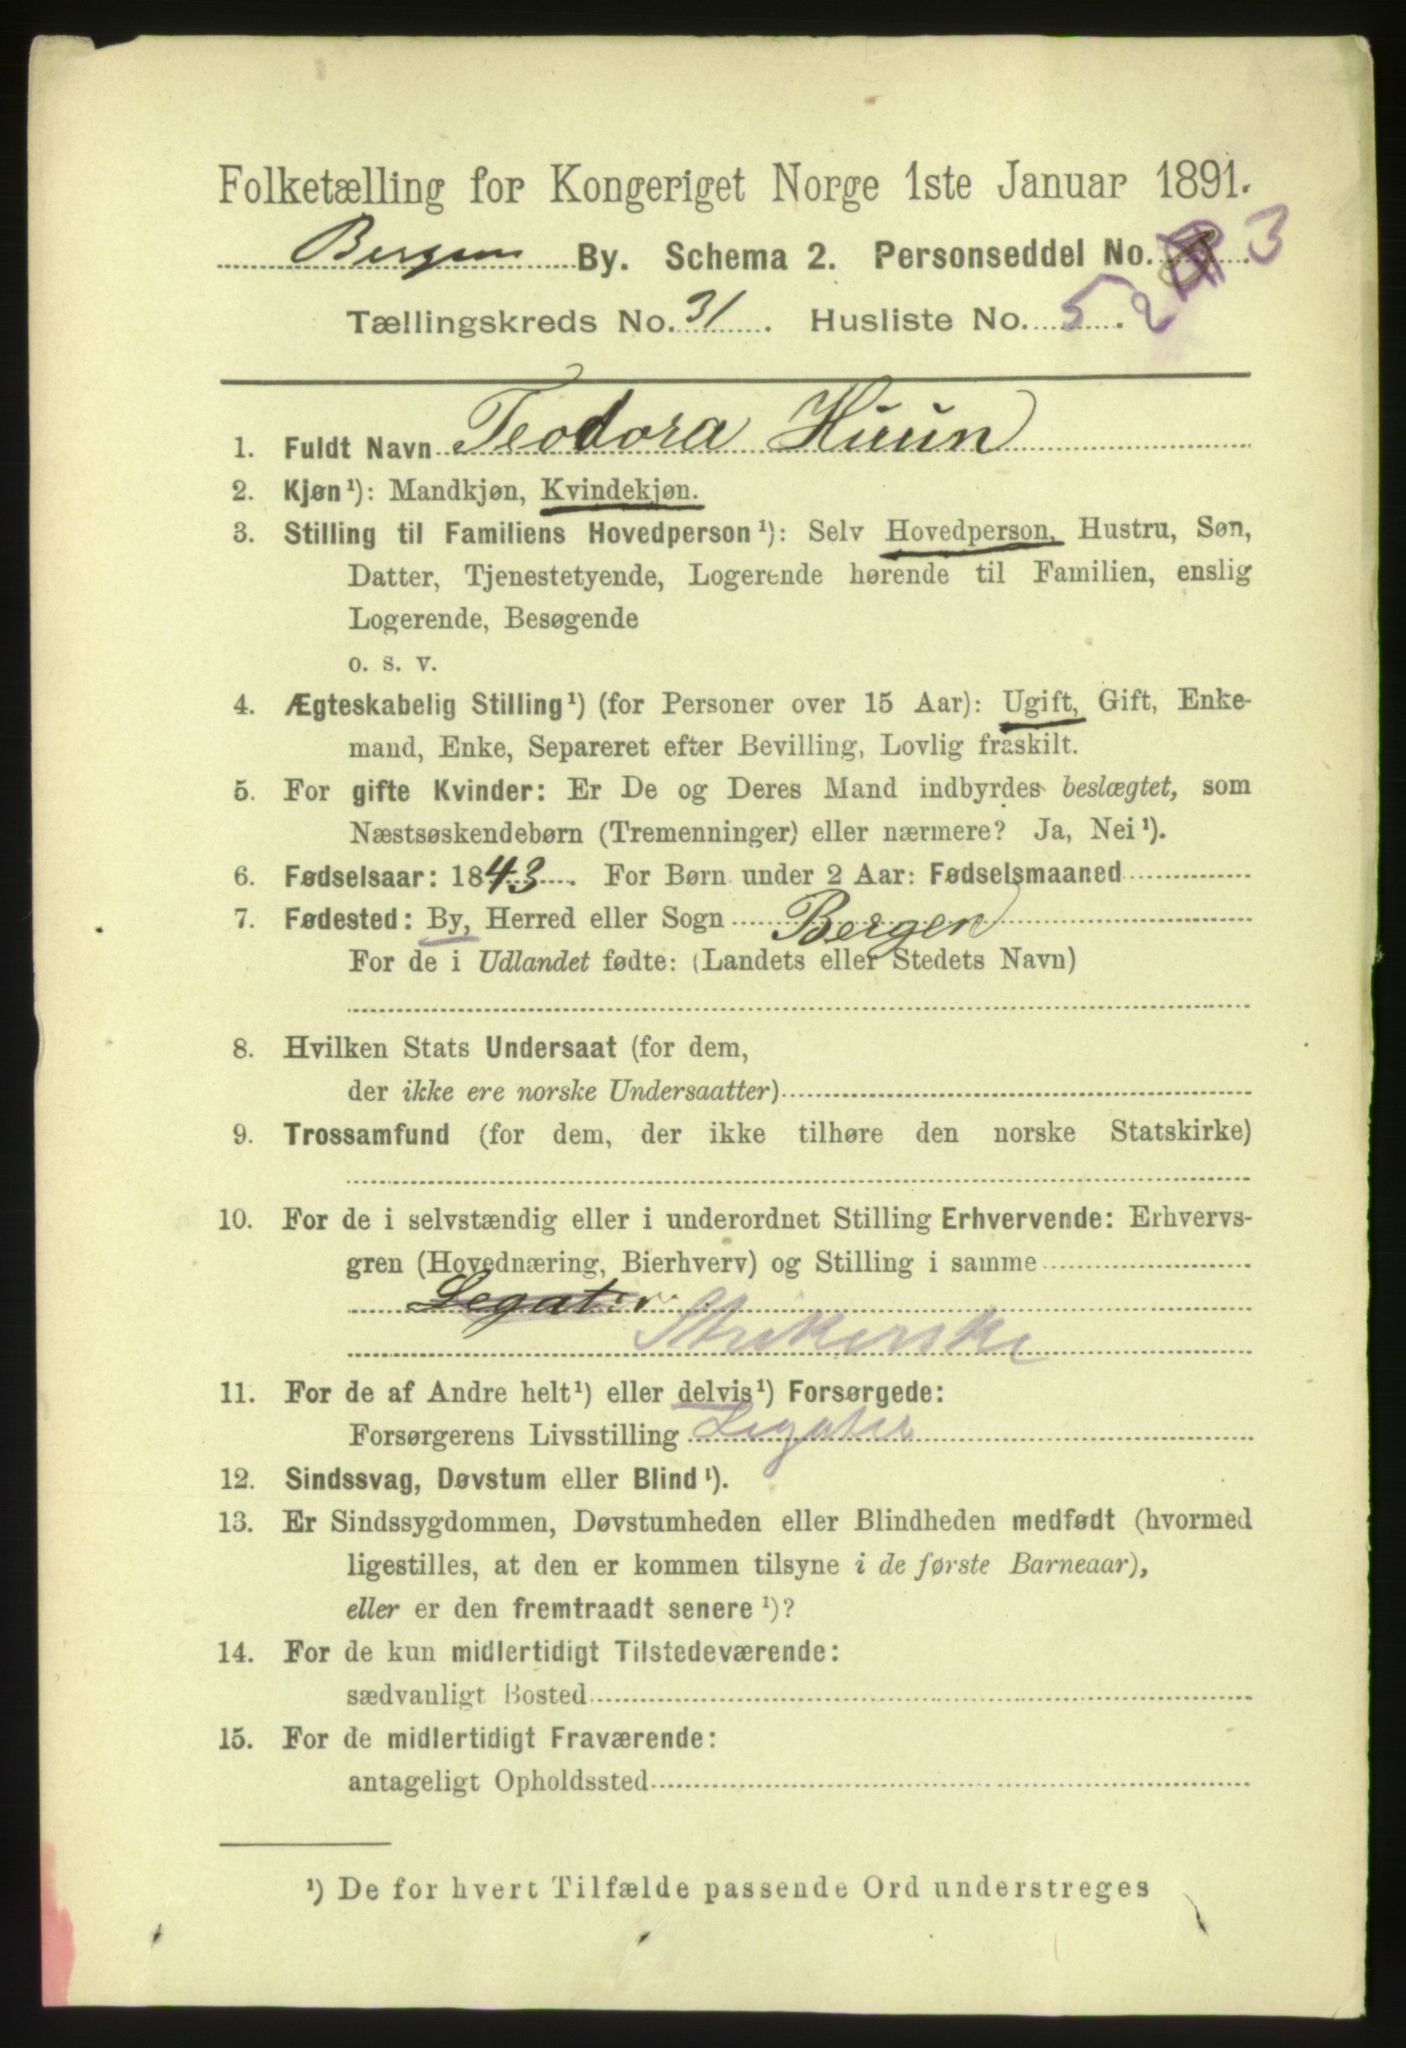 Folketælling for Kongeriget Norge 1ste Januar 1891.
Bergen By. Schema 2. Personseddel No. 3
Tællingskreds No. 31. Husliste No. 52.
1. Fuldt Navn Teodora Huun
2. Kjøn¹): Mandkjøn, Kvindekjøn.
3. Stilling til Familiens Hovedperson¹): Selv Hovedperson, Hustru, Søn,
Datter, Tjenestetyende, Logerende hørende til Familien, enslig
Logerende, Besøgende
o. s. v.
4. Ægteskabelig Stilling¹) (for Personer over 15 Aar): Ugift, Gift, Enke-
mand, Enke, Separeret efter Bevilling, Lovlig fraskilt.
5. For gifte Kvinder: Er De og Deres Mand indbyrdes beslægtet, som
Næstsøskendebørn (Tremenninger) eller nærmere? Ja, Nei¹).
6. Fødselsaar: 1843. For Børn under 2 Aar: Fødselsmaaned
7. Fødested: By, Herred eller Sogn Bergen
For de i Udlandet fødte: (Landets eller Stedets Navn)
8. Hvilken Stats Undersaat (for dem,
der ikke ere norske Undersaatter)
9. Trossamfund (for dem, der ikke tilhøre den norske Statskirke)
10. For de i selvstændig eller i underordnet Stilling Erhvervende: Erhvervs-
gren (Hovednæring, Bierhverv) og Stilling i samme
Legater
Strikerske
11. For de af Andre helt¹) eller delvis¹) Forsørgede:
Forsørgerens Livsstilling Legater
12. Sindssvag, Døvstum eller Blind¹).
13. Er Sindssygdommen, Døvstumheden eller Blindheden medfødt (hvormed
ligestilles, at den er kommen tilsyne i de første Barneaar),
eller er den fremtraadt senere¹)?
14. For de kun midlertidigt Tilstedeværende:
sædvanligt Bosted
15. For de midlertidigt Fraværende:
antageligt Opholdssted
¹) De for hvert Tilfælde passende Ord understreges